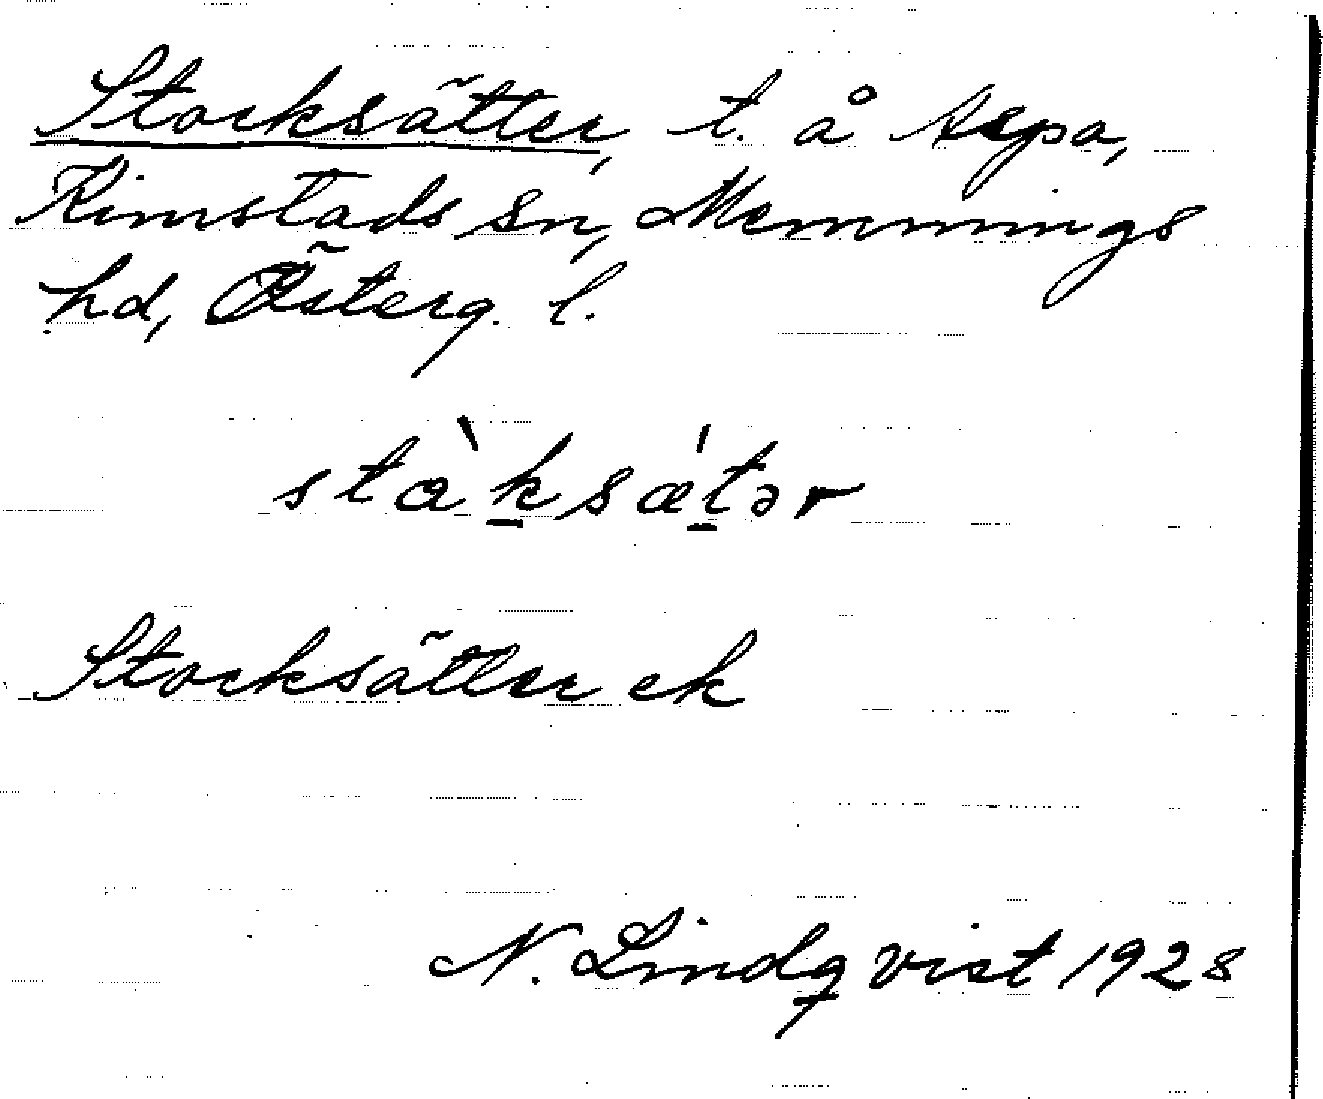 Stocksätter, t. å Aspa,
Kimstads sn, Memmings
hd, Österg. l.
stàksǽtər
Stocksätter ek
N. Lindqvist 1928